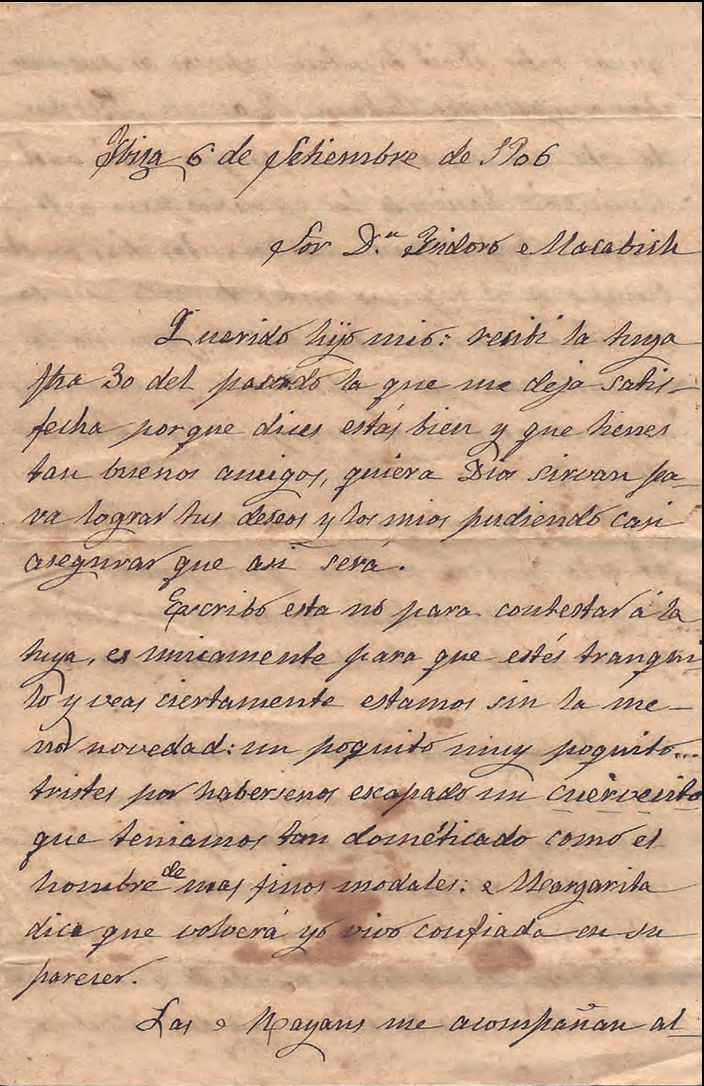 Ibiza 6 de Setiembre de 1906
Sor D.n Isidoro Macabich
Querido hijo mio: recibi la tuya
fha 30 del pasado la que me deja satis-
fecha porque dices estás bien y que tienes
tan buenos amigos, quiera Dios sirvan pa-
ra lograr tus deseos y los mios pudiendo casi
asegurar que asi será.
Escribo esta no para contestar á la
tuya, es unicamente para que estés tranqui
lo y veas ciertamente estamos sin la me-
nor novedad: un poquito muy poquito...
tristes por habersenos escapado un cuervecito
que teniamos tan dométicado como el
hombre de mas finos modales: Margarita
dice que volverá yo vivo confiada en su
parecer.
Las Mayans me acompañan al